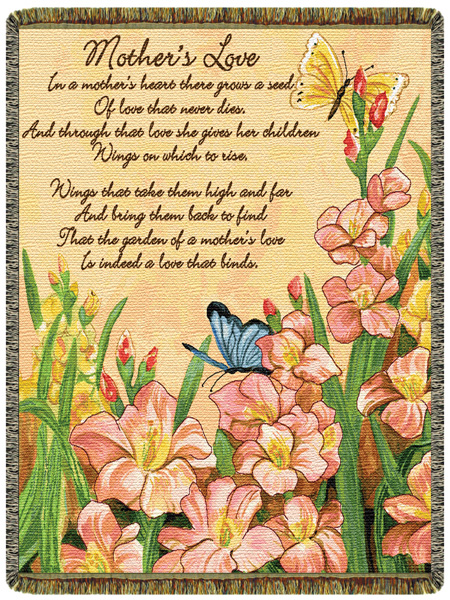 Mother's Love
In a mother's heart there grows a seed
Of love that never dies.
And through that love she gives her children
Wings on which to rise.
Wings that take them high and far
And bring them back to find
That the garden of a mother's love
Is indeed a love that binds.